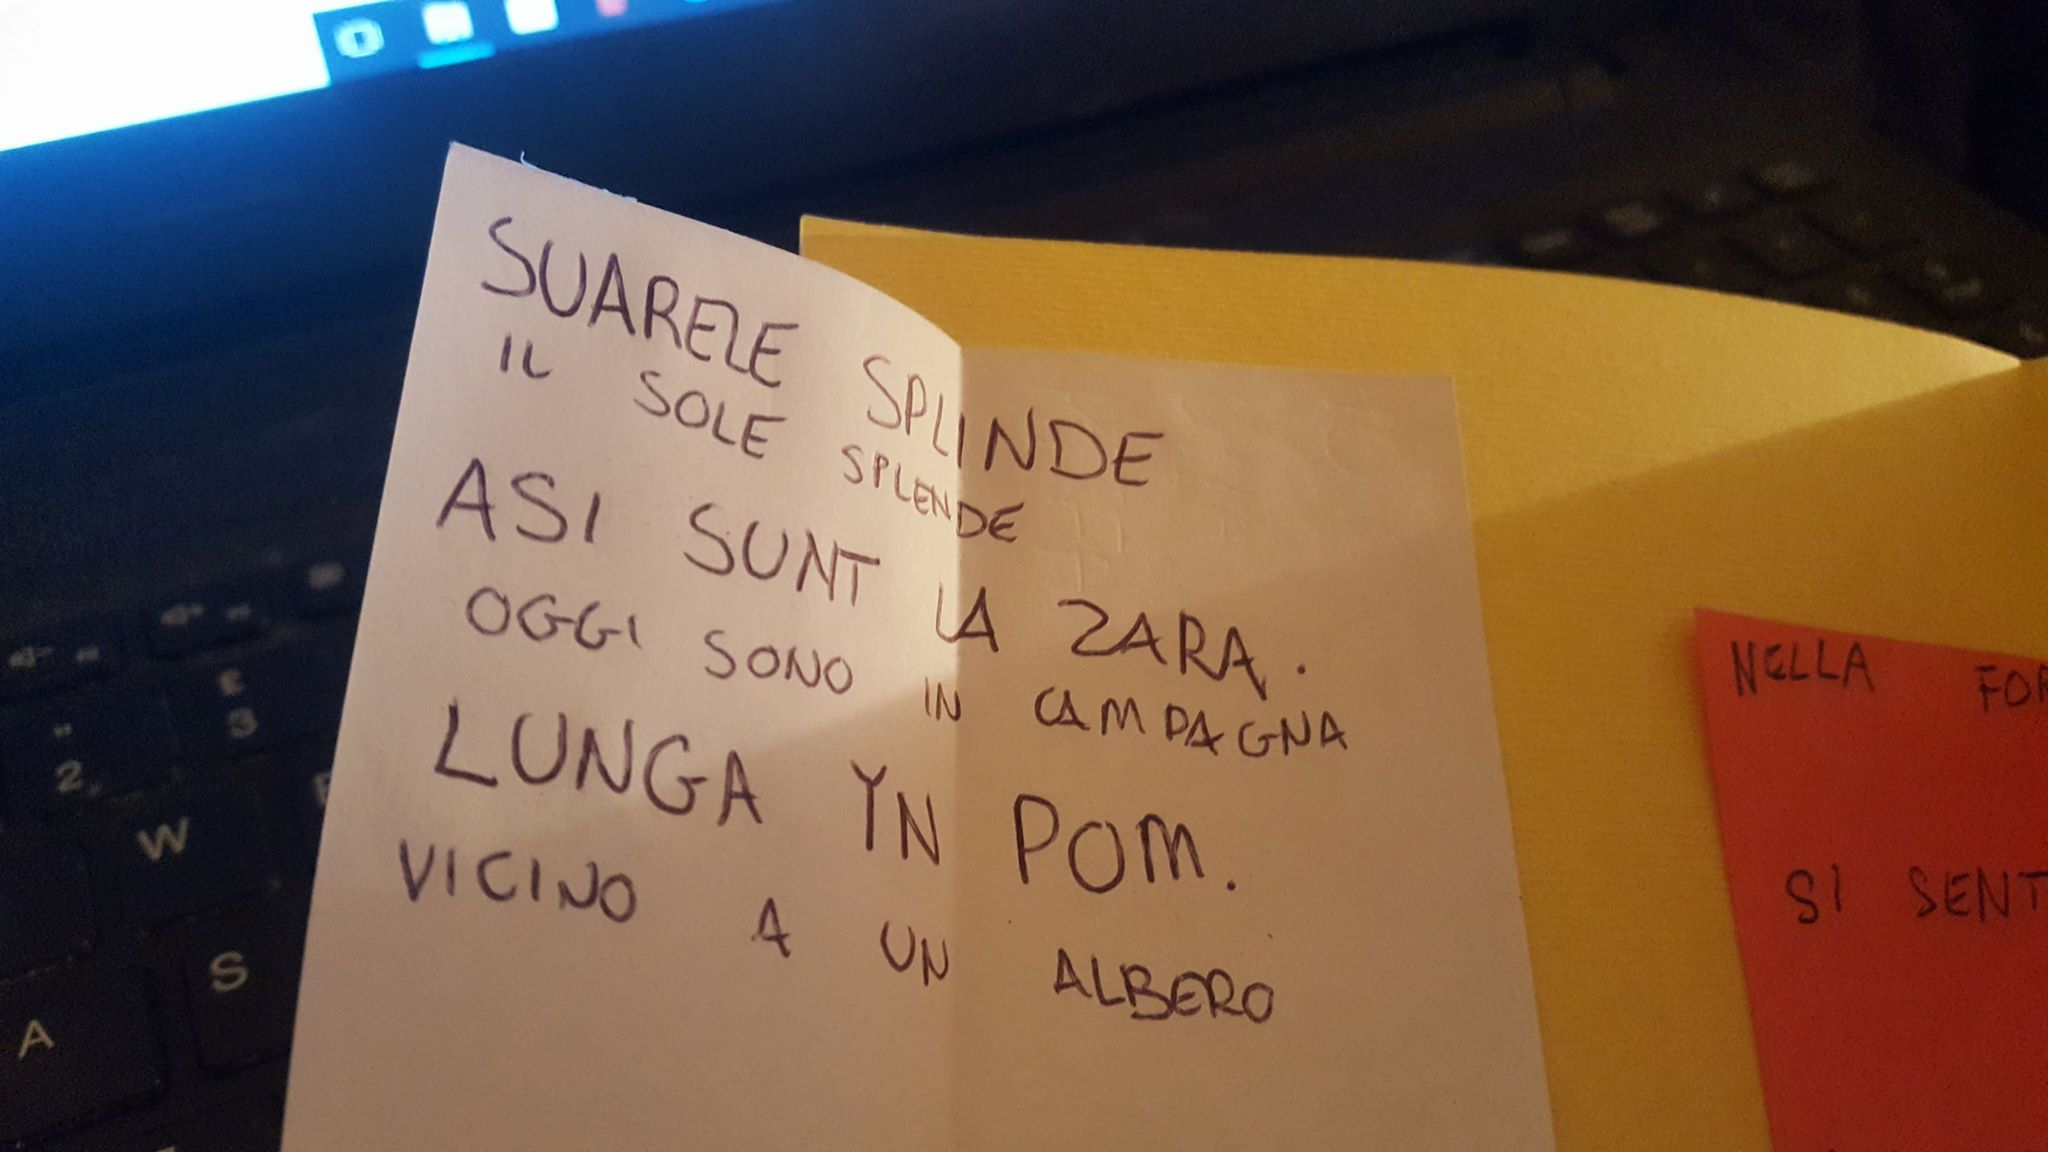 SUARELE SPLINDE
IL SOLE SPLENDE
ASI SUNT LA ZARA.
OGGI SONO IN CAMPAGNA
LUNGA YN POM.
VICINO A UN ALBERO
NELLA FOR
SI SENT
2
3
W
S
A